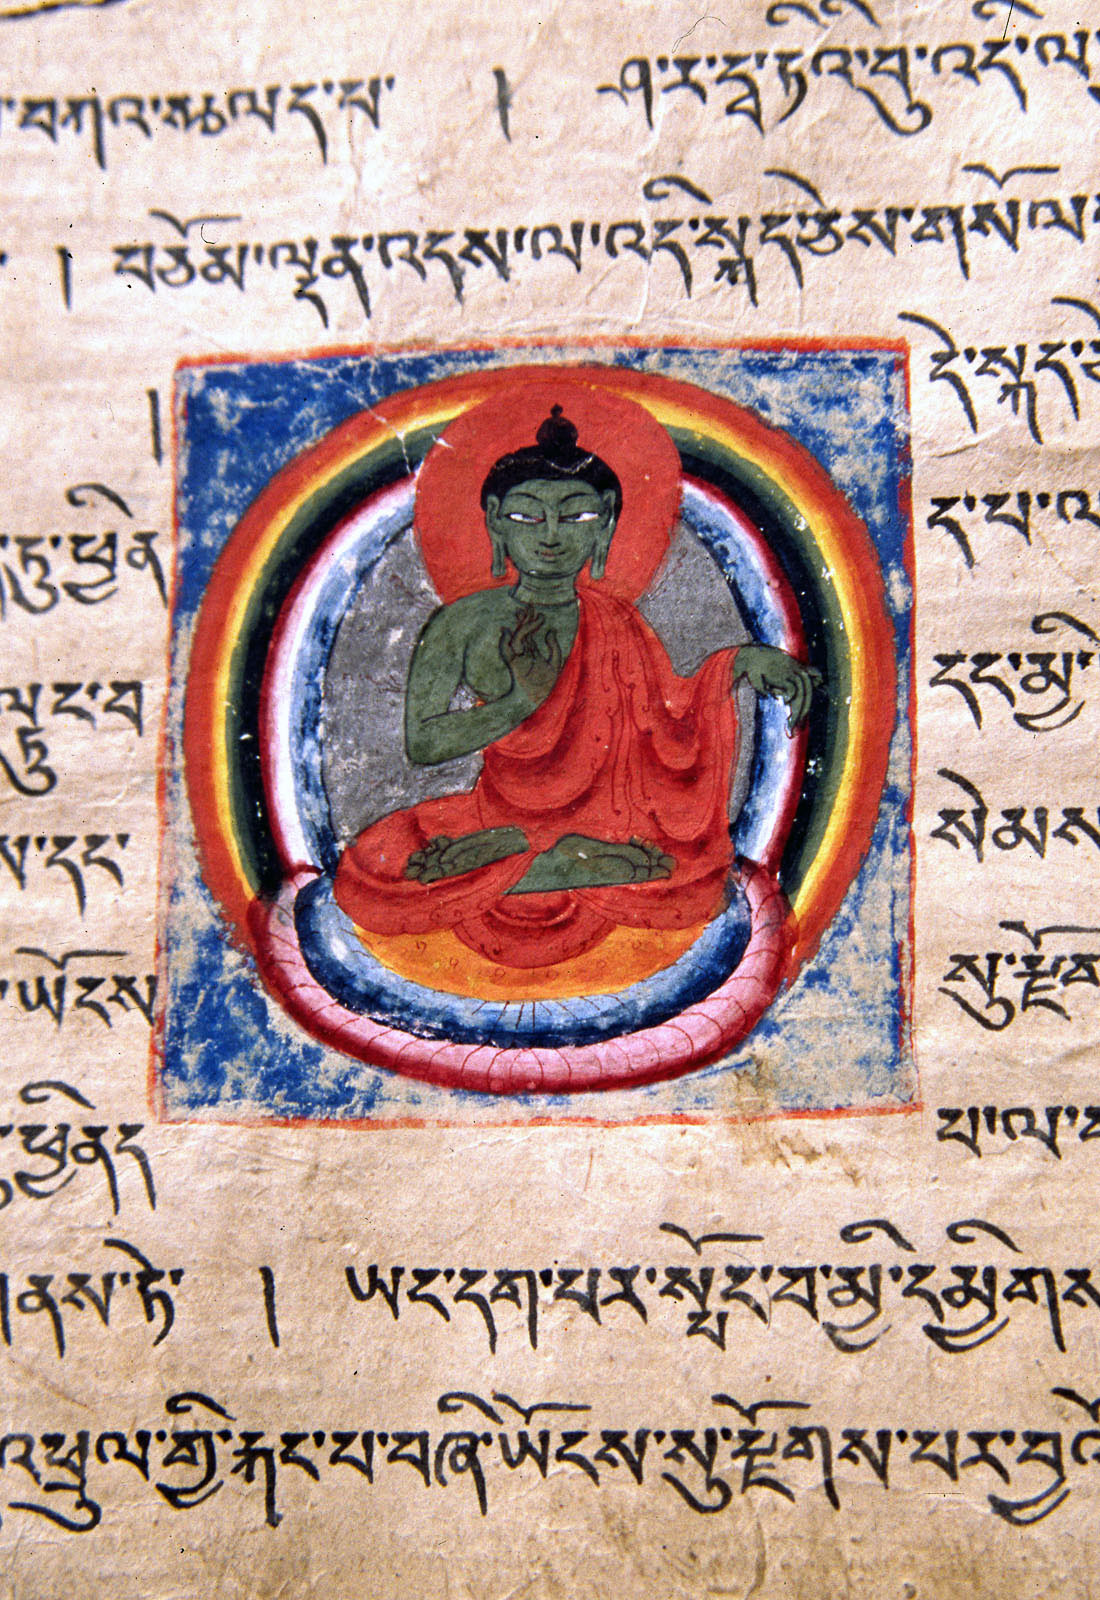 ་བཀའ་སྩལད་པ་ ། ཤ་ར་དྭ་ཏིའི་བུ་འདི་ལ
། བཅོམ་ལྡན་འདས་ལ་འདི་སྐད་ཅེས་གསོལ
། དེ་སྐད་
ཏུ་ཕྱིན ད་པ་ལ
ལྟུང་བ དང་མྱི་
ས་དང་ སེམས
་ཡོངས སུ་རྫོག
་ཕྱིནད པ་ལ་
ནས་ཏེ་ ། ཡང་དག་པར་སྤོང་བ་མྱི་དམྱིགས
འཕྲུལ་གྱི་རྐང་པ་བཞི་ཡོངས་སུ་རྫོགས་པར་བྱ